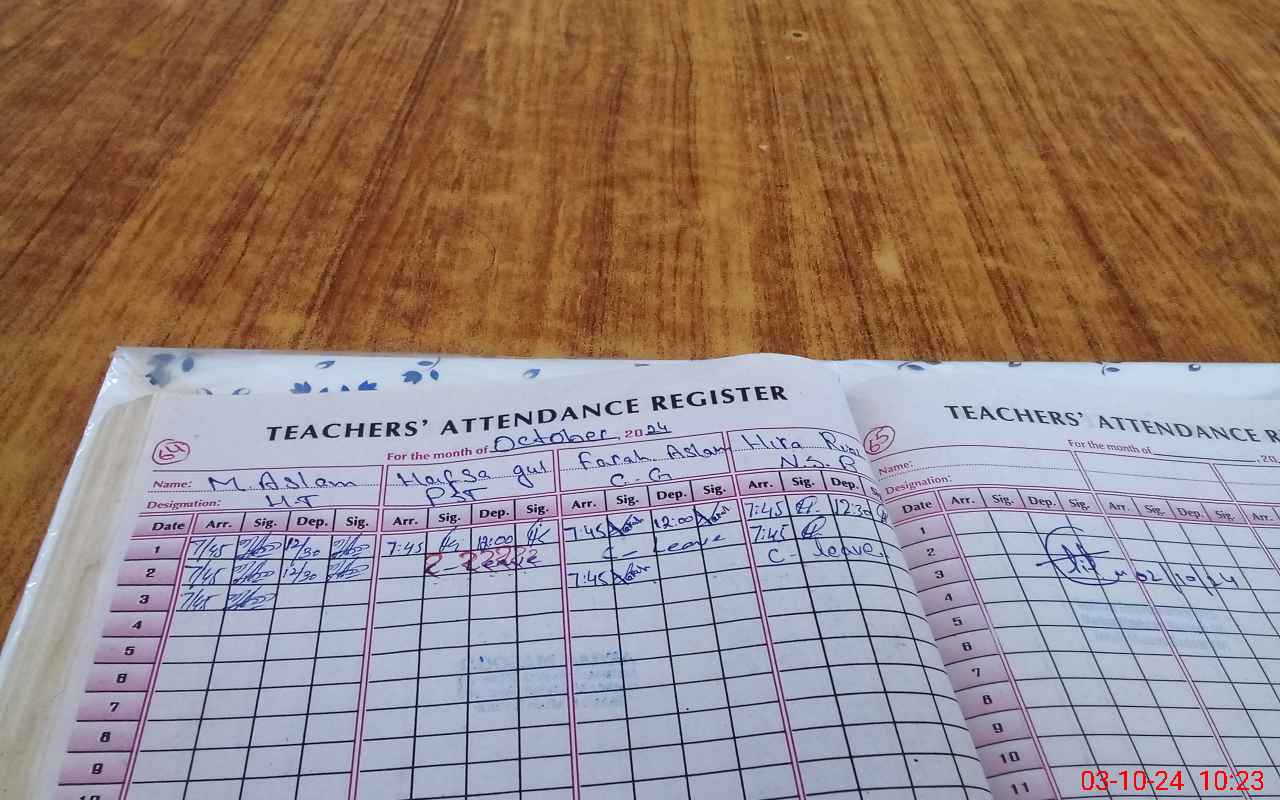 TEACHERS' ATTENDANCE REGISTER
64
For the month of October 2024
Name: M. Aslam Hafsa gul Farah Aslam Hira
Designation: H.T PST C.G
Date Arr. Sig. Dep. Sig. Arr. Sig. Dep. Sig. Arr. Sig. Dep. Sig. Arr. Sig. Dep. Sig.
1 7/45 12/30 7:45 12:00 7:45 12:00 7:45 12:30
2 7/45 12/30 C-Leave C-Leave 7:45
3 7/45 7:45 C-leave
4
5
6
7
8
9
10
TEACHERS' ATTENDANCE R
65
For the month of 20
Name:
Designation:
Date Arr. Sig. Dep. Sig. Arr. Sig. Dep. Sig. Arr.
1
2
3 02/10/24
4
5
6
7
8
9
10
11
03-10-24 10:23